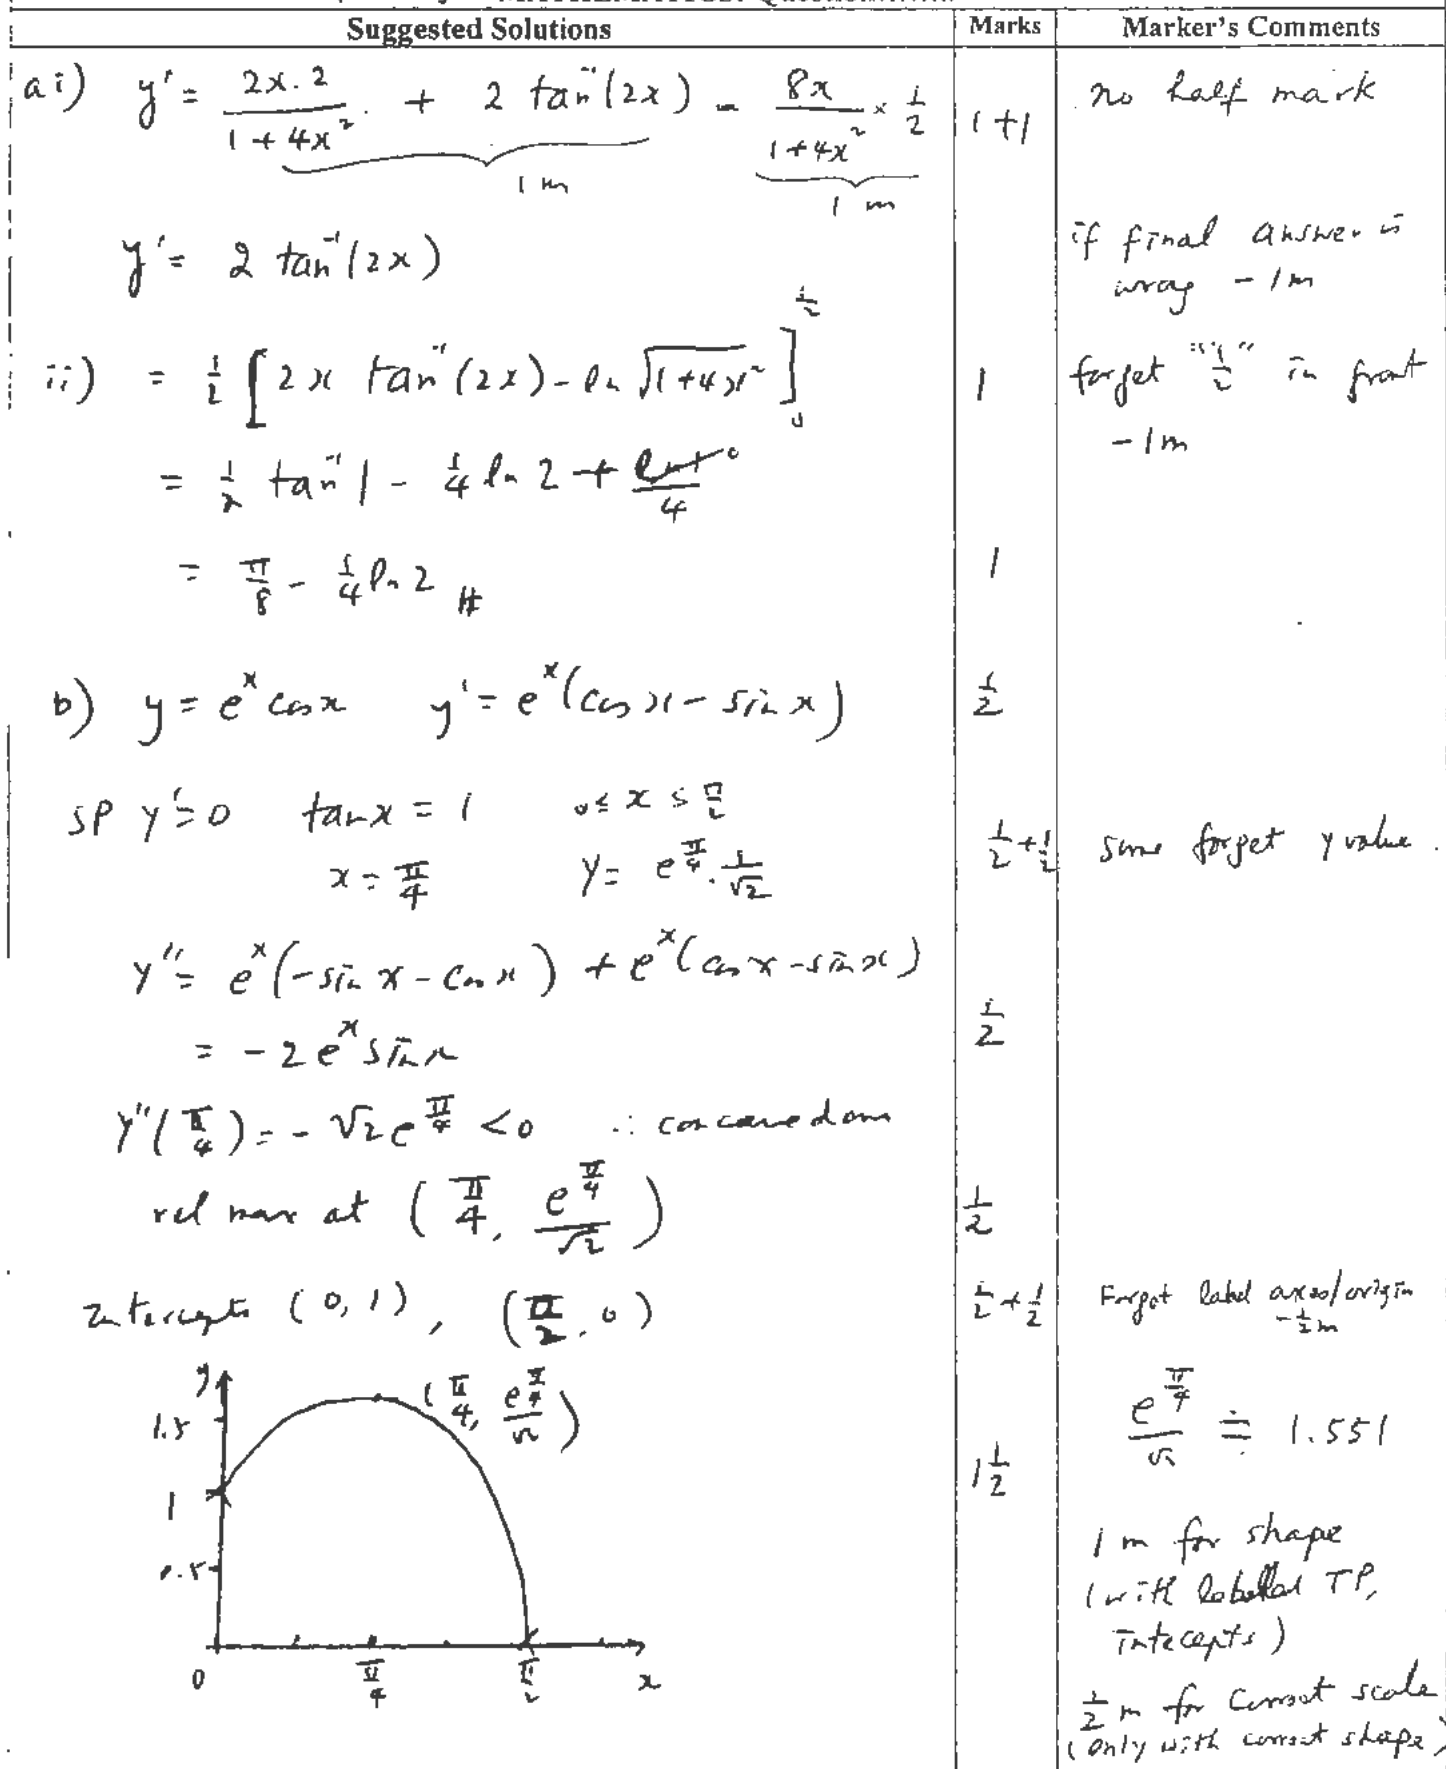 Suggested Solutions | Marks | Marker's Comments
a i) y' = \frac{2x.2}{1+4x^2} + 2 tan^{-1}(2x) - \frac{8x}{1+4x^2} × \frac{1}{2} | 1+1 | no half mark
1 m
1 m
y' = 2 tan^{-1}(2x) | if final answer is
wrong - 1m
ii) = \frac{1}{2} [2x tan^{-1}(2x) - ln \sqrt{1+4x^2}]_0^{\frac{1}{2}} | 1 | forget "\frac{1}{2}" in front
- 1m
= \frac{1}{2} tan^{-1} 1 - \frac{1}{4} ln 2 + \frac{ln 1}{4} 0
= \frac{π}{8} - \frac{1}{4} ln 2 # | 1
b) y = e^x cos x y' = e^x (cos x - sin x) | \frac{1}{2}
SP y' = 0 tan x = 1 0 ≤ x ≤ \frac{π}{2}
x = \frac{π}{4} y = e^{\frac{π}{4}} . \frac{1}{\sqrt{2}} | \frac{1}{2} + \frac{1}{2} | some forget y value.
y'' = e^x (-sin x - cos x) + e^x (cos x - sin x)
= -2 e^x sin x | \frac{1}{2}
y''(\frac{π}{4}) = -\sqrt{2} e^{\frac{π}{4}} < 0 ∴ concave down
rel max at (\frac{π}{4}, \frac{e^{\frac{π}{4}}}{\sqrt{2}}) | \frac{1}{2}
Intercepts (0, 1), (\frac{π}{2}, 0) | \frac{1}{2} + \frac{1}{2} | Forget label axes/origin
- \frac{1}{2} m
y
(\frac{π}{4}, \frac{e^{\frac{π}{4}}}{\sqrt{2}})
1.5
1
0.5
0 \frac{π}{4} \frac{π}{2} x
1\frac{1}{2}
\frac{e^{\frac{π}{4}}}{\sqrt{2}} ≐ 1.551
1 m for shape
(with labelled TP,
intecepts)
\frac{1}{2} m for correct scale
(only with correct shape)